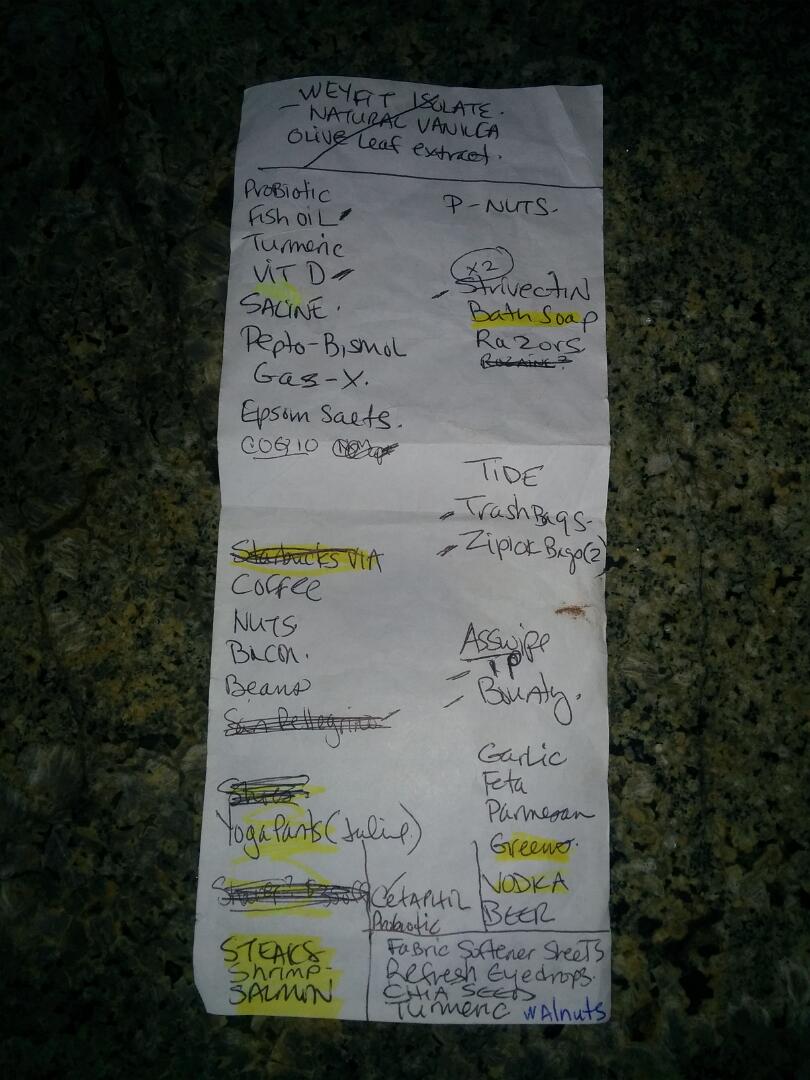 - WEYFIT ISOLATE.
NATURAL VANILLA
OLIVE Leaf extract.
ProBiotic
Fish OIL
Turmeric
VIT D
SALINE.
Pepto-Bismol
Gas-X.
Epsom Saets.
COQ10
Starbucks VIA
Coffee
NUTS
BACON.
Beans
San Pellegrino
Yoga Pants (Juline)
STEAKS
Shrimp-
SALMON
P-NUTS.
x2
StrivectiN
Bath Soap
Razors
TIDE
Trash Bags-
Ziplok Bags(2)
Asswipe
TP
Bounty.
Garlic
Feta
Parmesan
Greens.
VODKA
BEER
CETAPHIL
Probiotic
Fabric Softener SheeTs
Refresh Eyedrops.
CHIA SEEDS
Turmeric walnuts